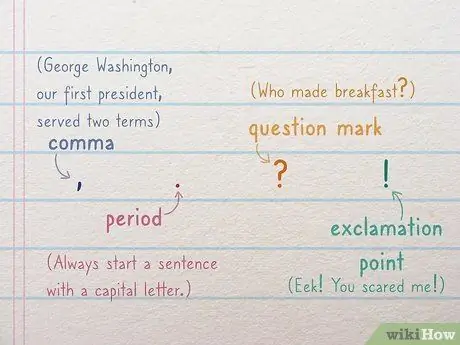 (George Washington,
our first president,
served two terms)
comma
,
period
.
(Always start a sentence
with a capital letter.)
(Who made breakfast?)
question mark
?
!
exclamation
point
(Eek! You scared me!)
wikiHow